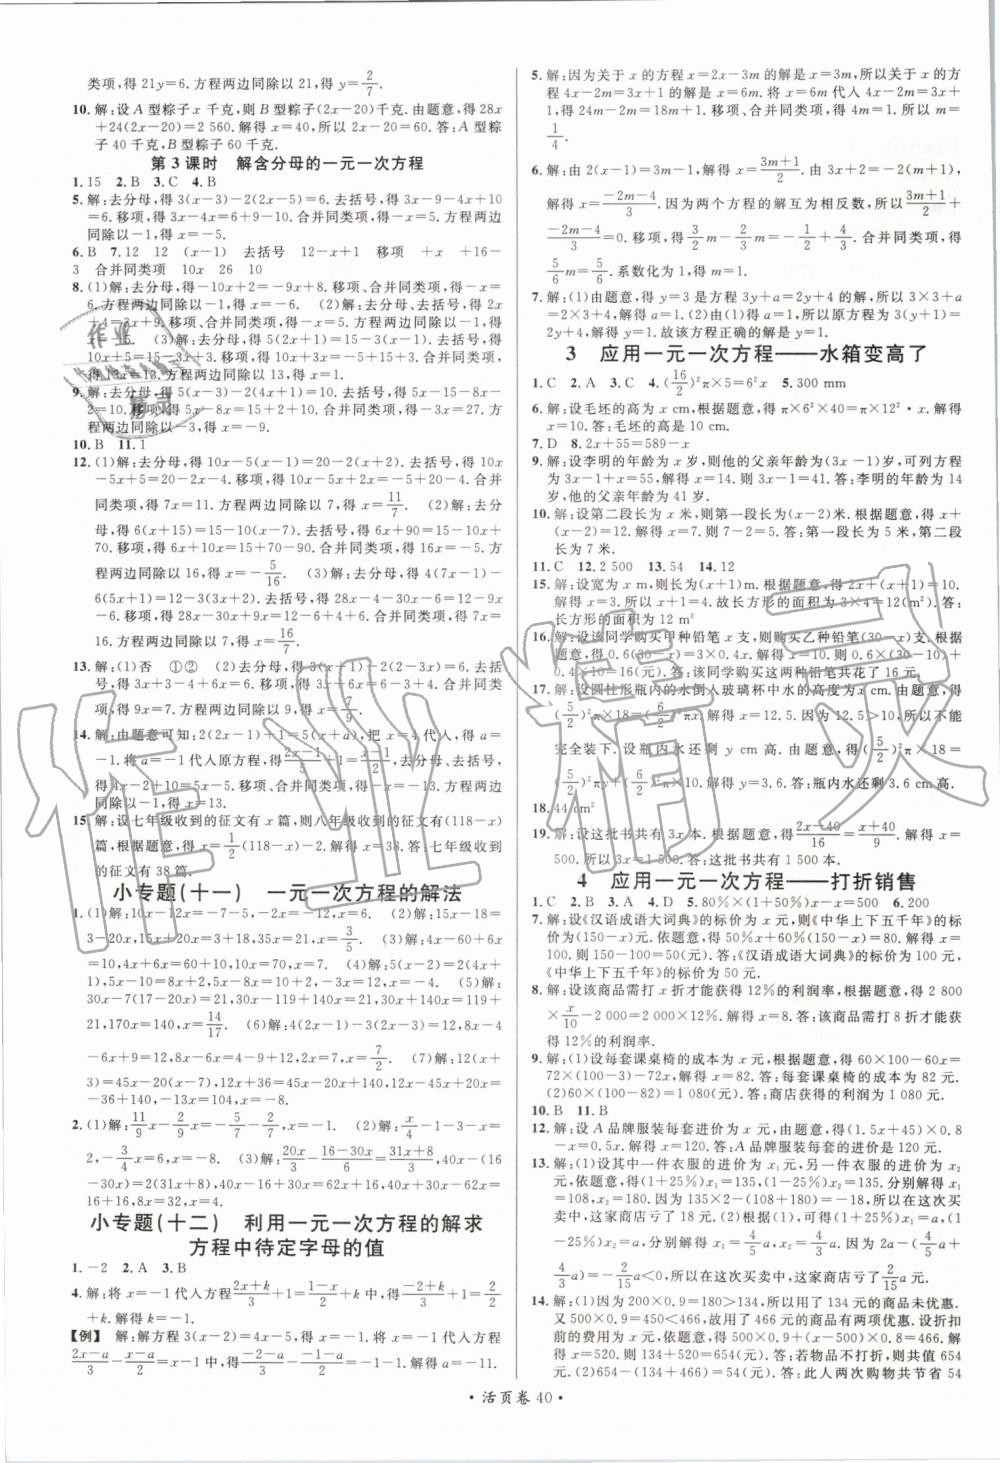 类项,得 21y=6. 方程两边同除以 21,得 y=2/7.
10. 解:设 A 型粽子 x 千克,则 B 型粽子(2x-20)千克. 由题意,得 28x
+24(2x-20)=2 560. 解得 x=40,所以 2x-20=60. 答:A 型粽
子 40 千克,B 型粽子 60 千克.
第 3 课时 解含分母的一元一次方程
1. 15 2. B 3. C 4. B
5. 解:去分母,得 3(x-3)-2(2x-5)=6. 去括号,得 3x-9-4x+10
=6. 移项,得 3x-4x=6+9-10. 合并同类项,得-x=5. 方程两边
同除以-1,得 x=-5.
6. B 7. 12 12 (x-1) 去括号 12-x+1 移项 +x +16-
3 合并同类项 10x 26 10
8. (1)解:去分母,得
=6. 方程两边同除以-1,得 x=-6. (2)解:去分母,得
9. 解:去分母,得 5(x-3)-2(4x+1)=10. 去括号,得 5x-15-8x-
2=10. 移项,得 5x-8x=10+15+2. 合并同类项,得-3x=27. 方程两
边同除以-3,得 x=-9.
10. B 11. 1
12. (1)解:去分母,得 10x-5(x-1)=20-2(x+2). 去括号,得 10x-
5x+5=20-2x-4. 移项,得 10x-5x+2x=20-4-5. 合并
同类项,得 7x=11. 方程两边同除以 7,得 x=11/7. (2)解:去分
母,得 6(x+15)=15-10(x-7). 去括号,得 6x+90=15-10x+
70. 移项,得 6x+10x=15+70-90. 合并同类项,得 16x=-5. 方程
两边同除以 16,得 x=-5/16. (3)解:去分母,得 4(7x-1)-
6(5x+1)=12-3(3x+2). 去括号,得 28x-4-30x-6=12-9x
-6. 移项,得 28x-30x+9x=12-6+4+6. 合并同类项,得 7x=
16. 方程两边同除以 7,得 x=16/7.
13. 解:(1)否 ①② (2)去分母,得
3x+3-4+6x=6. 移项,得 3x+6x=6-3+4. 合并同类项,得
9x=7. 方程两边同除以 9,得 x=7/9.
14. 解:由题意可知:2(2x-1)+1=5(x+a),把 x=4 代入,得 a=
-1. 将 a=-1 代入原方程,得 (2x-1)/5+1=(x-1)/2. 去分母,得
4x-2+10=5x-5. 移项、合并同类项,得-x=-13. 方程两边
同除以-1,得 x=13.
15. 解:设七年级收到的征文有 x 篇,则八年级收到的征文有(118-x)
篇,根据题意,得 x=1/2(118-x)-2. 解得 x=38. 答:七年级收到
的征文有 38 篇.
小专题(十一) 一元一次方程的解法
1. (1)解:10x-12x=-7-5,-2x=-12,x=6. (2)解:15x-18=
3-20x,15x+20x=3+18,35x=21,x=3/5. (3)解:4x-60+6x
=10,4x+6x=10+60,10x=70,x=7. (4)解:5(x-2)=2(4x+1),
5x-10=8x+2,5x-8x=2+10,-3x=12,x=-4. (5)解:
30x-7(17-20x)=21,30x-119+140x=21,30x+140x=119+
21,170x=140,x=14/17. (6)解:4(2x-1)-3(2x-3)=12,8x-4
-6x+9=12,8x-6x=12+4-9,2x=7,x=7/2. (7)解:12(x+
3)=45x-20(x-7),12x+36=45x-20x+140,12x-45x+20x=
-36+140,-13x=104,x=-8.
2. (1)解:11/9x-2/9x=-5/7-2/7,x=-1. (2)解:x/4-1-3-x=
2,-3/4x=6,x=-8. (3)解:20x/3-(16-30x)/6=(31x+8)/3,40x-(16
-30x)=2(31x+8),40x-16+30x=62x+16,40x+30x-62x=
16+16,8x=32,x=4.
小专题(十二) 利用一元一次方程的解求
方程中待定字母的值
1. -2 2. A 3. B
4. 解:将 x=-1 代入方程(2x+k)/3+1=(1-x)/2+k 中,得(-2+k)/3+1=(1+1)/2
+k. 解得 k=-1.
【例】 解:解方程 3(x-2)=4x-5,得 x=-1. 将 x=-1 代入方程
(2x-a)/3-(x-a)/2=x-1,得(-2-a)/3-(-1-a)/2=-1-1. 解得 a=-11.
5. 解:因为关于 x 的方程 x=2x-3m 的解是 x=3m,所以关于 x 的方
程 4x-2m=3x+1 的解是 x=6m. 将 x=6m 代入 4x-2m=3x+
1,得 24m-2m=18m+1. 移项、合并同类项,得 4m=1. 所以 m=
1/4.
6. 解:由 2(x-1)=3m-1,解得 x=(3m+1)/2. 由 3x+2=-2(m+1),
解得 x=(-2m-4)/3. 因为两个方程的解互为相反数,所以(3m+1)/2+
(-2m-4)/3=0. 移项,得3/2m-2/3m=-1/2+4/3. 合并同类项,得
5/6m=5/6. 系数化为 1,得 m=1.
7. 解:(1)由题意,得 y=3 是方程 3y+a=2y+4 的解,所以 3×3+a
=2×3+4,解得 a=1. (2)由(1)得 a=1,所以原方程为 3(y+1)=
2y+4,解得 y=1. 故该方程正确的解为 y=1.
3 应用一元一次方程——水箱变高了
1. C 2. A 3. C 4. (16/2)²π×5=6²x 5. 300 mm
6. 解:设毛坯的高为 x cm,根据题意,得 π×6²×40=π×20²·x. 解得
x=10. 答:毛坯的高是 10 cm.
7. D 8. 2x+55=589-x
9. 解:设李明的年龄为 x 岁,则他的父亲年龄为(3x-1)岁,可列方程
为 3x-1+x=55,解得 x=14. 则 3x-1=41. 答:李明的年龄为 14
岁,他的父亲年龄为 41 岁.
10. 解:设第二段长为 x 米,则第一段长为(x-2)米. 根据题意,得 x+
(x-2)=12. 解得 x=7. 则 7-2=5. 答:第一段长为 5 米,第二段
长为 7 米.
11. C 12. 13 13. 54 14. 12
15. 解:设宽为 x m,则长为(x+1)m. 根据题意,得 2x+(x+1)=10.
解得 x=3. 所以 x+1=4. 故长方形的面积为 3×4=12(m²). 答:
长方形的面积为 12 m²
16. 解:设该同学购买甲种铅笔 x 支,则购买乙种铅笔(30-x)支. 根据
题意,得 0.6(30-x)=3×0.4x. 解得 x=10. 则 0.6×(30-10)+
0.4×10=16(元). 答:该同学购买这两种铅笔共花了 16 元.
17. 解:设圆柱形瓶内的水倒入玻璃杯中水的高度为 x cm. 由题意,得
(5/2)²π×18=(6/2)²πx. 解得 x=12.5. 因为 12.5>10,所以不能
完全装下. 设瓶内水还剩 y cm 高. 由题意,得(5/2)²π×18=
(5/2)²πy+(6/2)²π×10. 解得 y=3.6. 答:瓶内水还剩 3.6 cm 高.
18. 44 cm²
19. 解:设这批书共有 3x 本. 根据题意,得(2x-40)/16=(x+40)/9. 解得 x=
500. 所以 3x=1 500. 答:这批书共有 1 500 本.
4 应用一元一次方程——打折销售
1. C 2. B 3. A 4. D 5. 80%×(1+50%)x-x=250 6. 200
7. 解:设《汉语成语大词典》的标价为 x 元,则《中华上下五千年》的标
价为(150-x)元. 依题意,得 50%x+60%(150-x)=80. 解得 x=
100. 150-100=50(元). 答:《汉语成语大词典》的标价为 100 元,
《中华上下五千年》的标价为 50 元.
8. 解:设该商品需打 x 折才能获得 12%的利润率,根据题意,得 2 800
×x/10-2 000=2 000×12%. 解得 x=8. 答:该商品需打 8 折才能获
得 12%的利润率.
9. 解:(1)设每套课桌椅的成本为 x 元. 根据题意,得 60×100-60x=
72×(100-3)-72x. 解得 x=82. 答:每套课桌椅的成本为 82
元. (2)60×(100-82)=1 080(元). 答:商店获得的利润为 1 080 元.
10. B 11. B
12. 解:设 A 品牌服装每套进价为 x 元,由题意,得(1.5x+45)×0.8
-x=2x/3. 解得 x=120. 答:A 品牌服装每套的进价是 120 元.
13. 解:(1)设其中一件衣服的进价为 x₁元,另一件衣服的进价为 x₂
元. 由题意,得(1+25%)x₁=135,(1-25%)x₂=135. 分别解得 x₁
=108,x₂=180. 因为 135×2-(108+180)=-18<0,所以在这次买
卖中,这家商店亏了 18 元. (2)同(1)可得(1+25%)x₁=a,(1
-25%)x₂=a,所以 x₁=4/5a,x₂=4/3a. 因为 2a-(4/5a+
4/3a)=-2/15a<0,所以在这次买卖中,这家商店亏了2/15a 元.
14. 解:(1)因为 200×0.9=180>134,所以用了 134 元的商品未优惠.
又 500×0.9=450<466,故用了 466 元的商品有优惠. 设折扣
前的费用为 x 元,则有 500×0.9+(x-500)×0.8=466. 解得
x=520. 则 134+520=654(元). 答:若物品不打折,则共值 654
元. (2)654-(134+466)=54(元). 答:此人两次购物共节省 54
·活页卷 40·
作业精灵